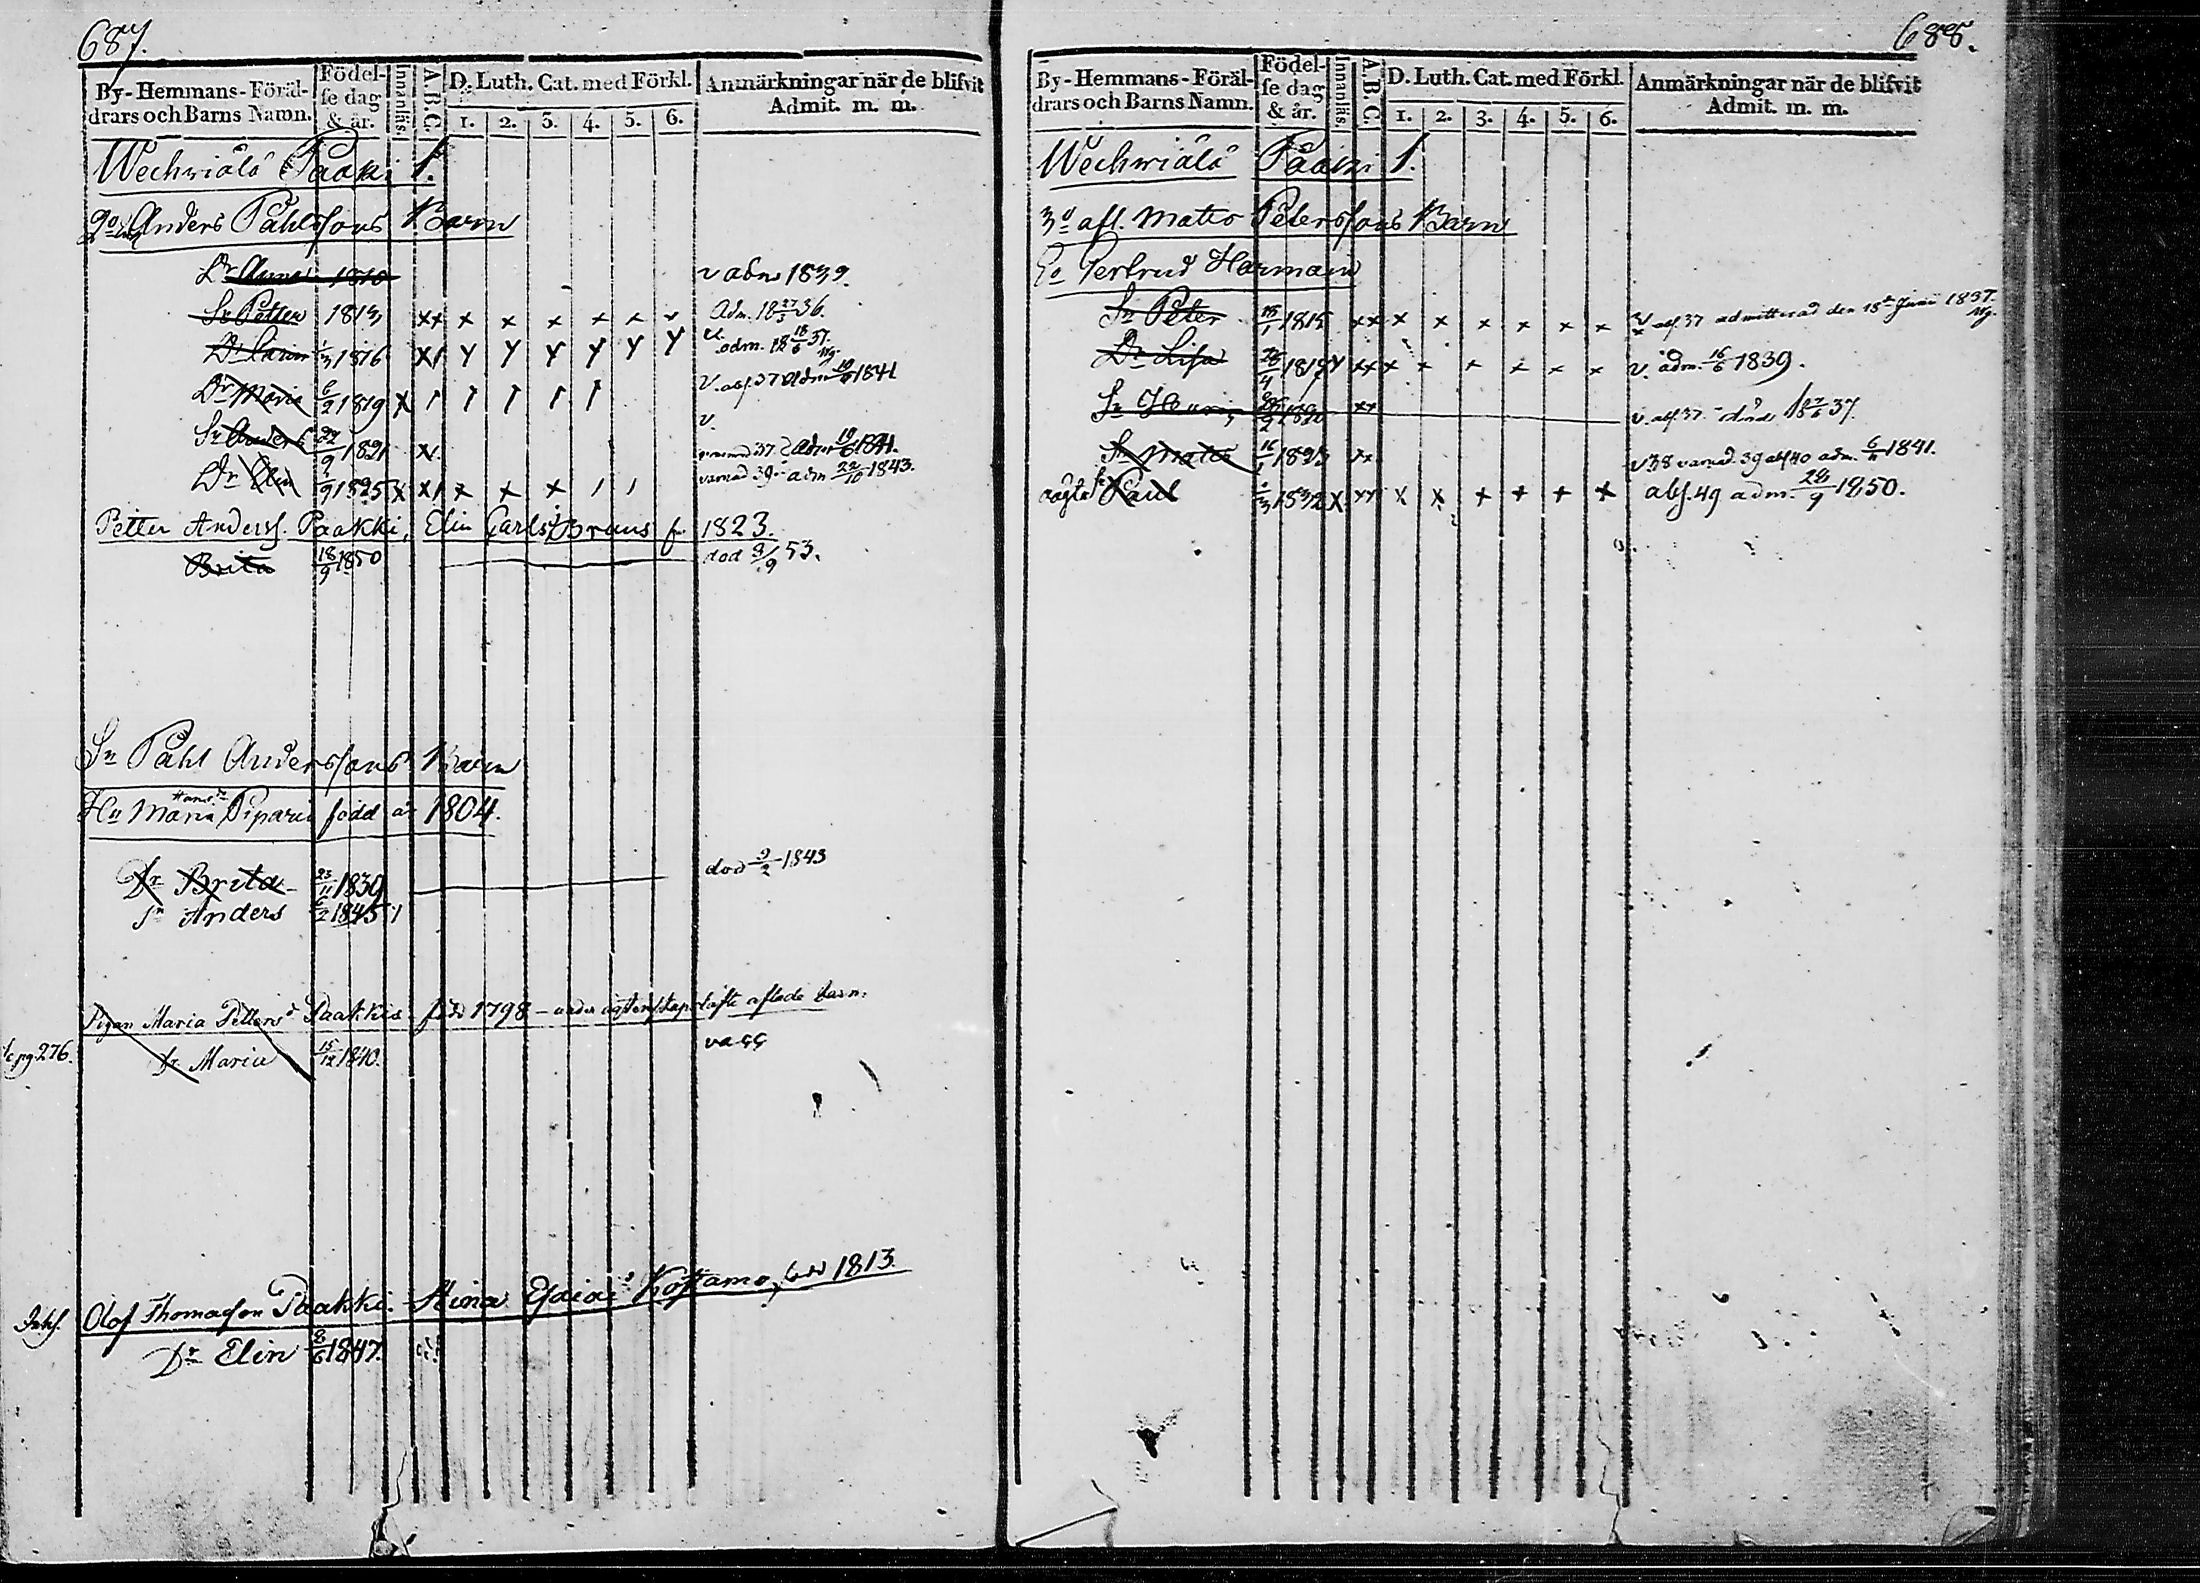 687.
By-Hemmans-Föräl-
drars och Barns Namn.
Födel-
se dag
& år.
Innanläs.
A.B.C.
D. Luth. Cat. med Förkl.
1. 2. 3. 4. 5. 6.
Anmärkningar när de blifvit
Admit. m. m.
Wechviälä Paaki 1.
Anders Påhlssons Barn
Dr Anna 1810 v adm 1839.
Sn Petter 1813 xx x x x x x x Adm. 18 27/5 36.
Dr Carin 1/3 1816 x1 Y Y Y Y Y Y adm. 18 18/6 37.
Dr Maria 6/2 1819 x 1 1 1 1 1 V. abs. 37 adm 1841
Sn Anders 1821 x v
37 adm 1841.
Dr Elin 9/9 1825 x x1 x x x 1 1 varnad 39 adm 22/10 1843.
Petter Anderss. Paakki, Elin Carlsd Braus f. 1823.
Brita 18/9 1850 död 3/9 53.
Sn Påhl Anderssons Barn
Hu Maria Hansdr Pipari född år 1804.
Dr Brita 23/11 1839 död 9/2 1843
Sn Anders 6/2 1845 1
Pigan Maria Pettersd Paakkis född 1798 – under ägtenskaps löfte aflade barn.
pg. 276. Dr Maria 15/12 1840.
Inhs. Olof Thomasson Paakki. Stina Esaiaed Kostamo, född 1813.
Dr Elin 8/6 1847.
688.
By-Hemmans-Föräl-
drars och Barns Namn.
Födel-
se dag
& år.
Innanläs.
A.B.C.
D. Luth. Cat. med Förkl.
1. 2. 3. 4. 5. 6.
Anmärkningar när de blifvit
Admit. m. m.
Wechviälä Paaki 1.
3o afl. Mats Peterssons Barn
Eo Gertrud Harmain
Sn Peter 15/1 1815 xx x x x x x x v abs. 37 admitterad den 18de Juni 1837.
Dr Lisa 25/4 1817 Y xx x x x x x x v. adm. 16/6 1839.
Sn Henric 1820 xx v. abs. 37 – död 18 27/6 37.
Sn Mats 16/1 1823 xx v 38 varnad. 39 abs 40 adm. 6/11 1841.
Paul 1/3 1832 x xx x x x x x x abs. 49 adm. 28/9 1850.